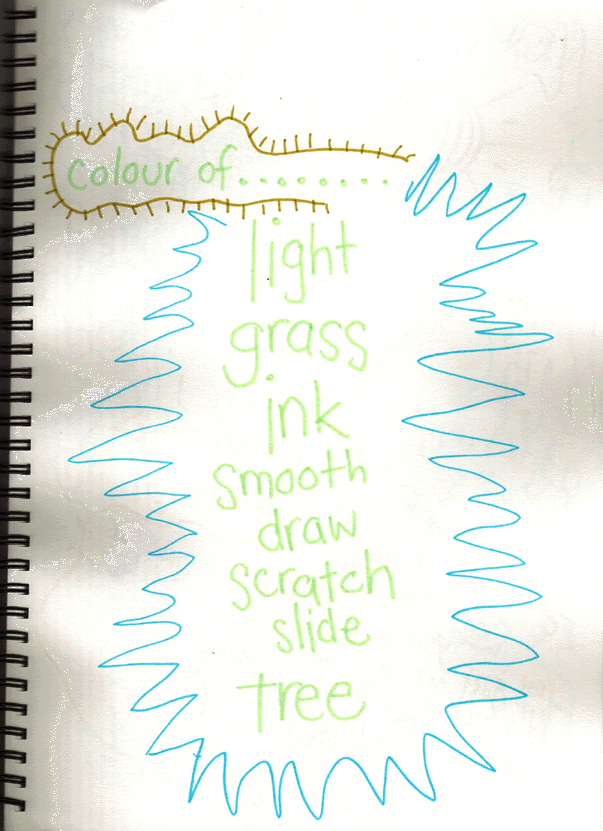 colour of........
light
grass
ink
smooth
draw
scratch
slide
tree